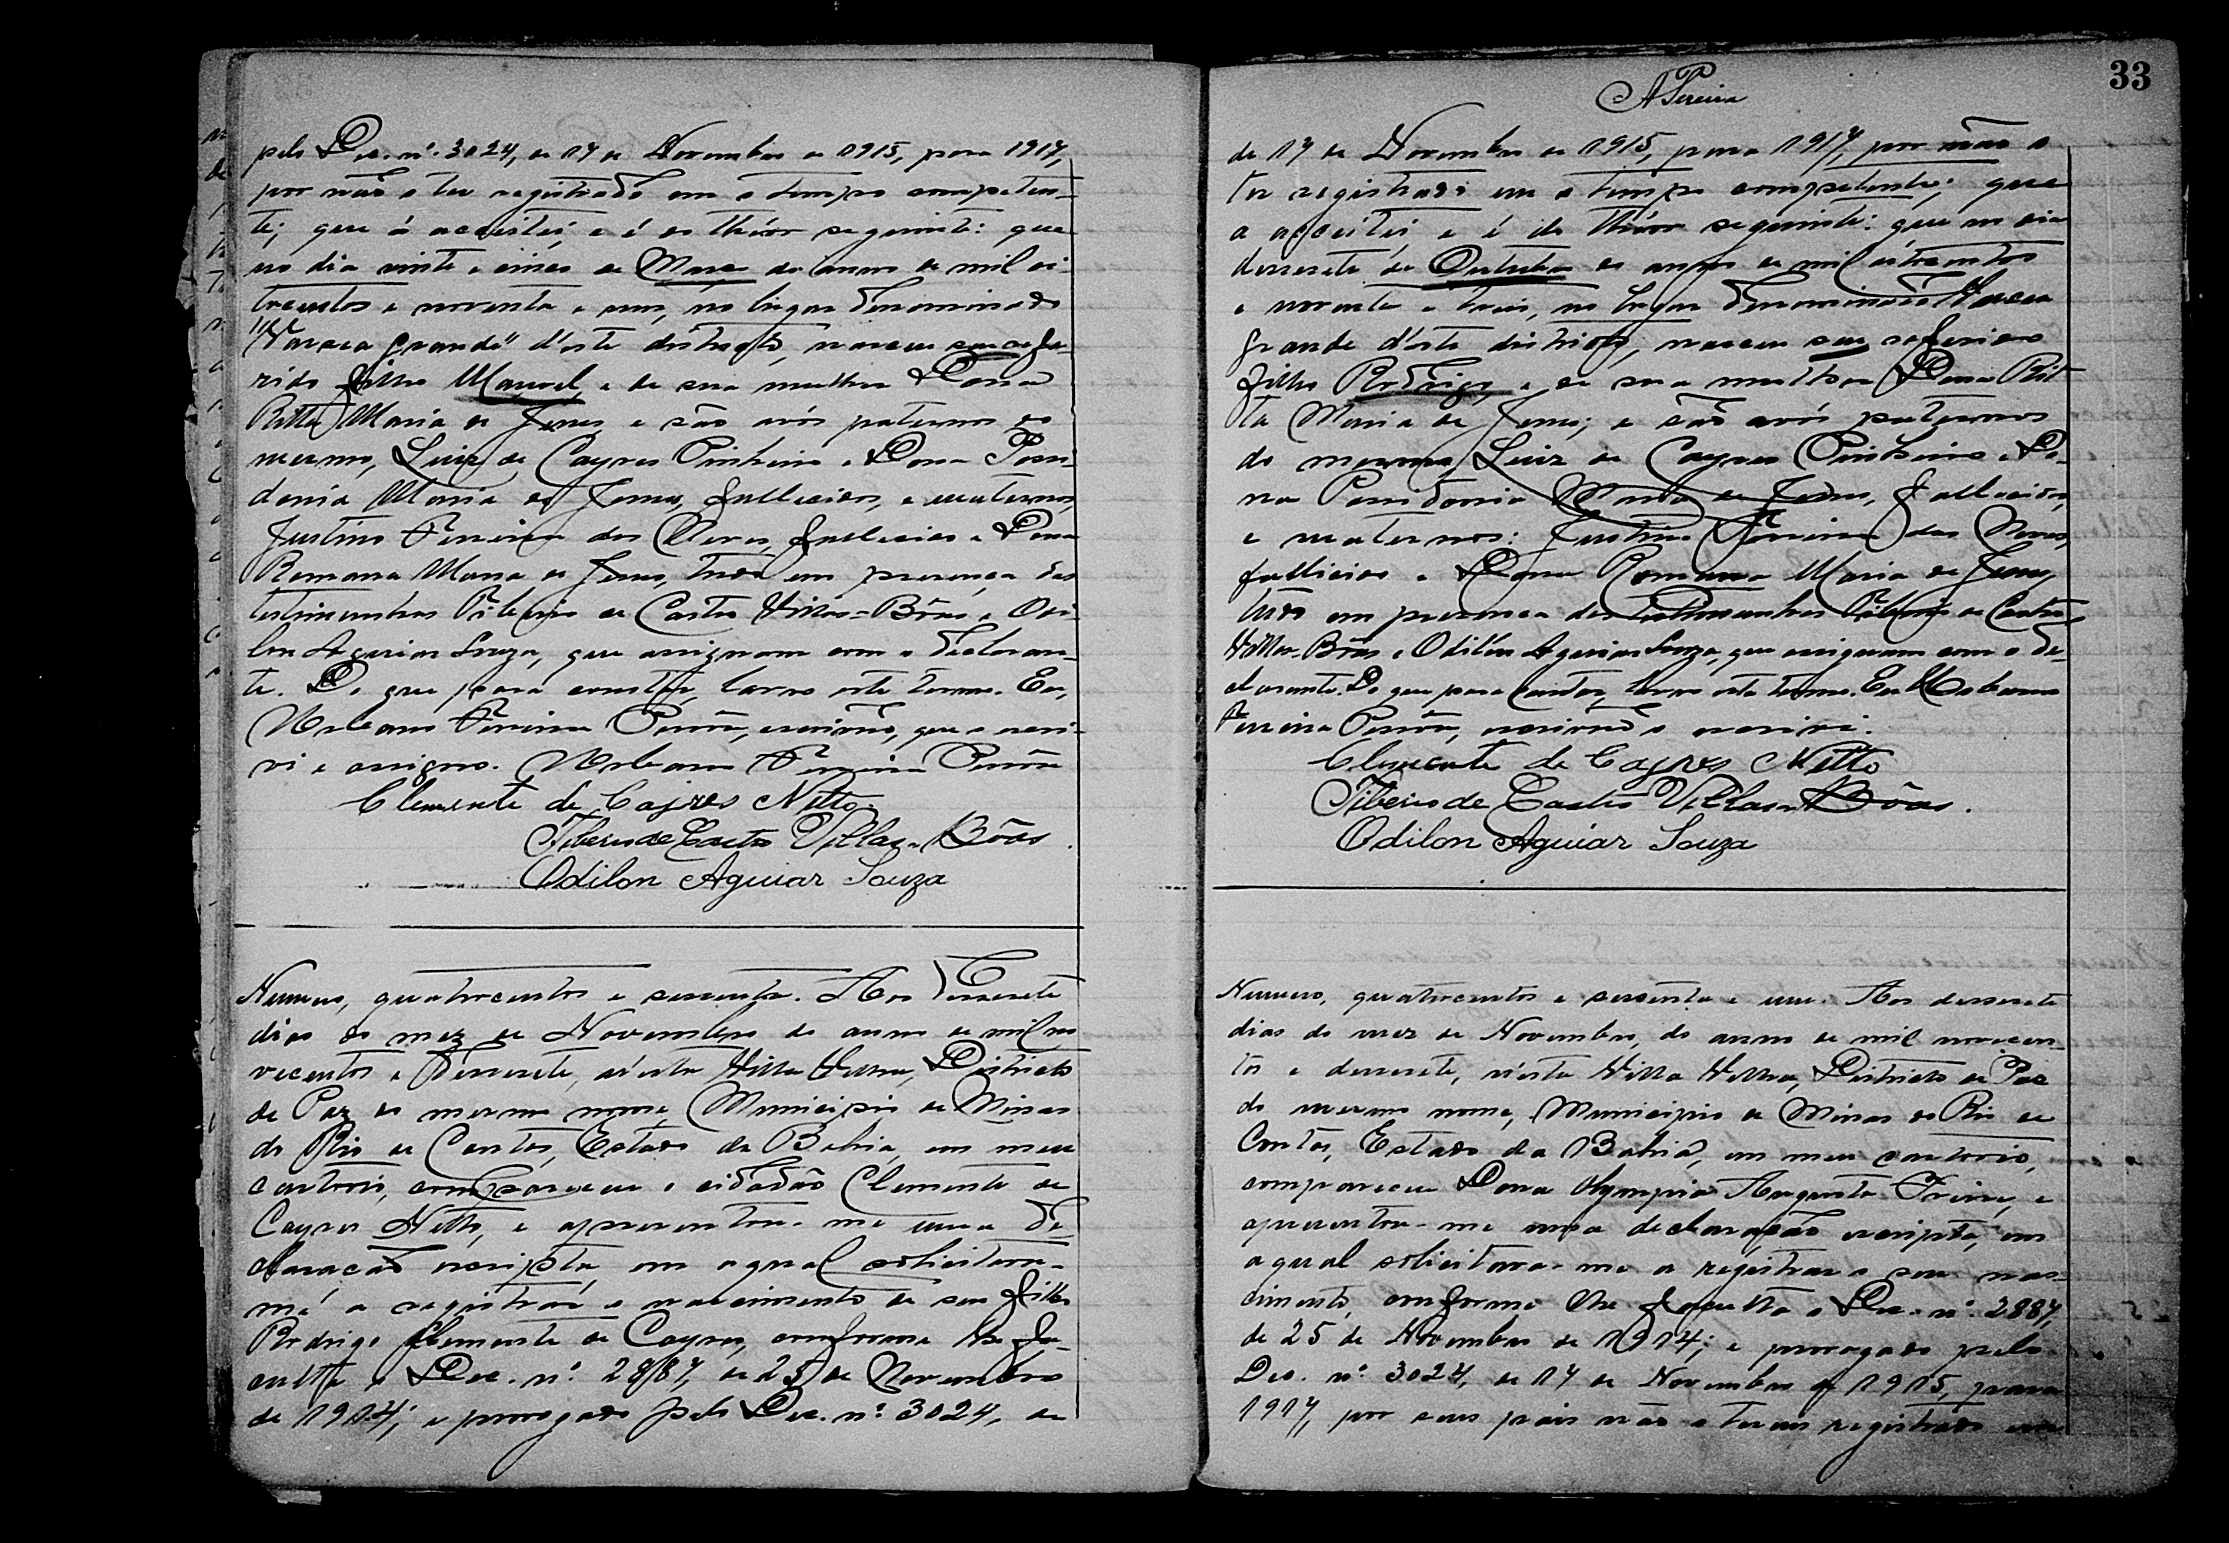 pelo Dec. nº. 3024, de 17 de Novembro de 1915, para 1917,
por não o ter registrado em o tempo competen-
te; que á acceitei, e é do théor seguinte: que
no dia vinte e cinco de Março do anno de mil oi-
trocentos e noventa e um, no lugar denominado
"Varsea grande" d'este districto, nasceu seu refe-
rido filho Manoel, e de sua mulher Dona
Ritta Maria de Jesus e são avós paternos do
mesmo, Luiz de Cayres Pinheiro e Dona Possi-
donia Maria de Jesus, fallecidos, e maternos,
Justino Ferreira das Neves, fallecido e Dona
Romana Maria de Jesus, tudo em presença das
testimunhas Tiberio de Castro Villas-Bôas e Odi-
lon Aguiar Souza, que assignam com o declaran-
te. Do que para constar, lavro este termo. Eu,
Ferreira escrivão, que o escre-
vi e assigno. Ferreira
Clemente de Cajres Netto.
Tiberio de Castro Villas-Bôas.
Odilon Aguiar Souza
Numero, quatrocentos e sessenta. Aos desesete
dias do mez de Novembro do anno de mil no-
vecentos e desesete, n'esta Villa Velha, Districto
de Paz do mesmo nome, Municipio de Minas
do Rio de Contas, Estado da Bahia, em meu
cartorio, compareceu o cidadão Clemente de
Cayres Netto, e apresentou-me uma de-
claração escripta em a qual solicitava-
me a registrar o nascimento de seu filho
Rodrigo Clemente de Cayres, conforme lhe fa-
culta o Dec. nº. 2887, de 25 de Novembro
de 1914; e prorogado pelo Dec. nº. 3024, de
33
APereira
de 17 de Novembro de 1915, para 1917, por não o
ter registrado em o tempo competente; que
a acceitei e é do théor seguinte: que no dia
desesete de Outubro do anno de mil oitocentos
e noventa e tres, no lugar denominado Varsea
grande d'este districto, nasceu seu referido
filho Rodrigo, e de sua mulher Dona Rit-
ta Maria de Jesus; e são avós paternos
do mesmo, Luiz de Cayres Pinheiro e Do-
na Possidonia Maria de Jesus, fallecidos,
e maternos: Justino Ferreira das Neves,
fallecido e Dona Romana Maria de Jesus,
tudo em presença das testimunhas Tiberio de Castro
Villas-Bôas e Odilon Aguiar Souza, que assignam com o de-
clarante. Do que para constar, lavro este termo. Eu
Ferreira escrivão o escrevi.
Clemente de Cajres Netto
Tiberio de Castro Villas-Bôas.
Odilon Aguiar Souza
Numero, quatrocentos e sessenta e um. Aos desesete
dias do mez de Novembro, do anno de mil novecen-
tos e desesete, n'esta Villa Velha, Districto de Paz
do mesmo nome, Municipio de Minas do Rio de
Contas, Estado da Bahia, em meu cartorio,
compareceu Dona Olympia Augusta Freire, e
apresentou-me uma declaração escripta, em
a qual solicitava-me a registrar o seu nas-
cimento, conforme lhe faculta o Dec. nº. 2887,
de 25 de Novembro de 1914; e prorogado pelo
Dec. nº. 3024, de 17 de Novembro de 1915, para
1917, por seus pais não o terem registrado em